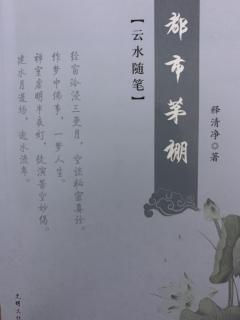 都市茅棚
【云水随笔】
释清净◎著
经窗冷浸三更月，空谈秘密真诠。
作梦中佛事，一梦人生。
禅室虚明半夜灯，徒演苦空妙偈。
建水月道场，逝水流年。